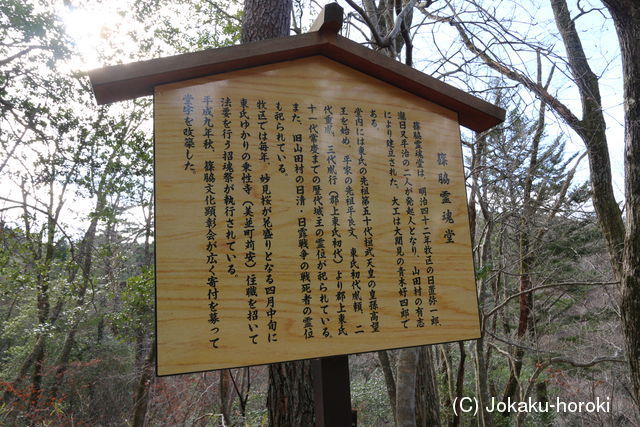 篠脇霊魂堂
篠脇霊魂堂は、明治四十二年牧区の日置弥一郎、
瀧日又平治の二人が発起人となり、山田村の有志
により建立された。大工は大間見の青木好四郎で
ある。
堂内には東氏の先祖第五十代桓武天皇の皇孫高望
王を始め、平家の先祖平良文、東氏初代胤頼、二
代重胤、三代胤行(郡上東氏初代)より郡上東氏
十一代常慶までの歴代城主の霊位が祀られている。
また、旧山田村の日清・日露戦争の戦死者の霊位
も祀られている。
牧区では毎年、妙見桜が花盛りとなる四月中旬に
東氏ゆかりの乗性寺(美並町苅安)住職を招いて
法要を行う招魂祭が執行されている。
平成九年秋、篠脇文化顕彰会が広く寄付を募って
堂宇を改築した。
(C) Jokaku-horoki